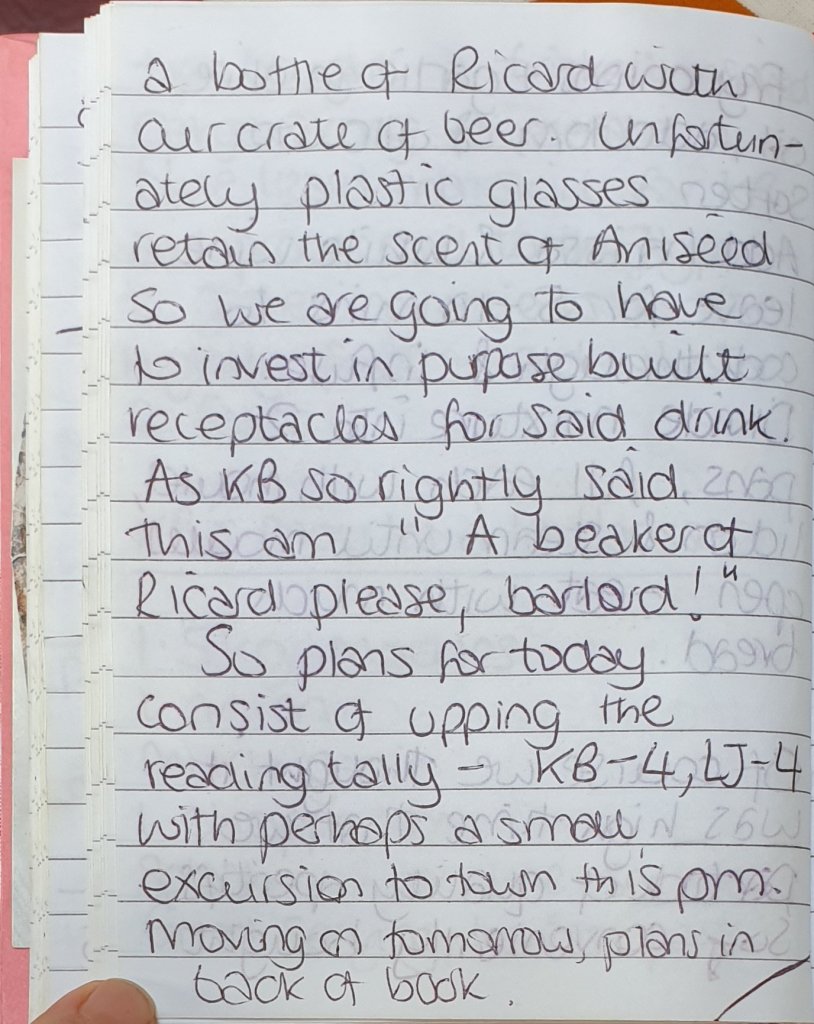 a bottle of Ricard with
our crate of beer. Unfortun-
ately plastic glasses
retain the scent of Aniseed
so we are going to have
to invest in purpose built
receptacles for said drink.
As KB so rightly said
this am " A beaker of
Ricard please, barlord!"
So plans for today
consist of upping the
reading tally - KB-4, LJ-4
with perhaps a small
excursion to town this pm.
Moving on tomorrow, plans in
back of book.